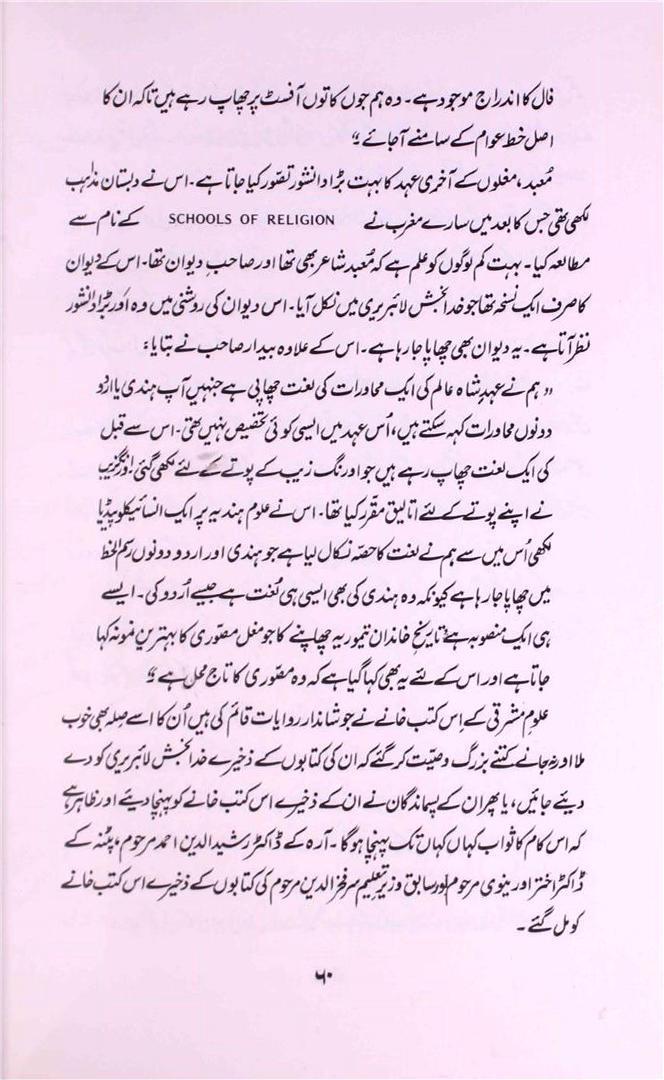 فال کا اندراج موجود ہے۔ وہ ہم جوں کا توں آفسٹ پر چھاپ رہے ہیں تاکہ ان کا
اصل خط عوام کے سامنے آجائے؎“
مُعبد، مغلوں کے آخری عہد کا بہت بڑا دانشور تصور کیا جاتا ہے۔ اس نے دبستان مذاہب
لکھی تھی جس کا بعد میں سارے مغرب نے SCHOOLS OF RELIGION کے نام سے
مطالعہ کیا۔ بہت کم لوگوں کو علم ہے کہ مُعبد شاعر بھی تھا اور صاحبِ دیوان تھا۔ اس کے دیوان
کا صرف ایک نسخہ تھا جو خدا بخش لائبریری میں نکل آیا۔ اس دیوان کی روشنی میں وہ اور بڑا دانشور
نظر آتا ہے۔ یہ دیوان بھی چھاپا جا رہا ہے۔ اس کے علاوہ بیدار صاحب نے بتایا:
”ہم نے عہدِ شاہ عالم کی ایک محاورات کی لغت چھاپی ہے جنہیں آپ ہندی یا اردو
دونوں محاورات کہہ سکتے ہیں، اُس عہد میں ایسی کوئی تخصیص نہیں تھی۔ اس سے قبل
کی ایک لغت چھاپ رہے ہیں جو اورنگ زیب کے پوتے کے لئے لکھی گئی! اورنگزیب
نے اپنے پوتے کے لئے اتالیق مقرر کیا تھا۔ اس نے علوم ہندیہ پر ایک انسائیکلوپیڈیا
لکھی اُس میں سے ہم نے لغت کا حصہ نکال لیا ہے جو ہندی اور اردو دونوں رسم الخط
میں چھاپا جا رہا ہے کیونکہ وہ ہندی کی بھی ایسی ہی لُغت ہے جیسے اُردو کی۔ ایسے
ہی ایک منصوبہ ہے تاریخ خاندان تیموریہ چھاپنے کا جو مغل مصوری کا بہترین نمونہ کہا
جاتا ہے اور اس کے لئے یہ بھی کہا گیا ہے کہ وہ مصوری کا تاج محل ہے؎“
علومِ مشرقی کے اِس کتب خانے نے جو شاندار روایات قائم کی ہیں اُن کا اسے صلہ بھی خوب
ملا اور نہ جانے کتنے بزرگ وصیت کر گئے کہ ان کی کتابوں کے ذخیرے خدا بخش لائبریری کو دے
دیئے جائیں، یا پھر ان کے پسماندگان نے ان کے ذخیرے اس کتب خانے کو پہنچا دیئے اور ظاہر ہے
کہ اس کام کا ثواب کہاں کہاں تک پہنچا ہوگا۔ آرہ کے ڈاکٹر رشید الدین احمد مرحوم، پٹنہ کے
ڈاکٹر اختر اورینوی مرحوم اور سابق وزیرِ تعلیم سر فخر الدین مرحوم کی کتابوں کے ذخیرے اس کتب خانے
کو مل گئے۔
۶۰